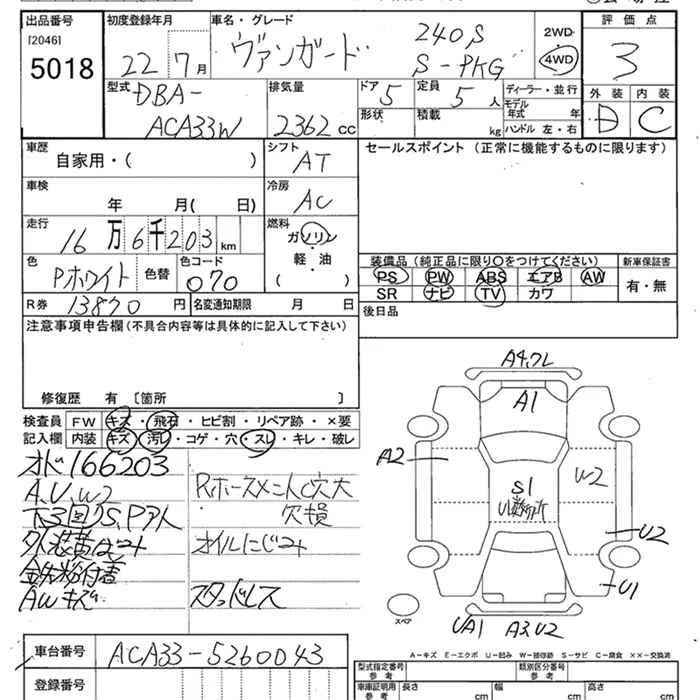 出品番号 初度登録年月 車名・グレード 評価点
[2046]
5018
22 7月
ヴァンガード
240S
S-PKG
2WD
4WD
3
型式
DBA-
ACA33W
排気量
2362 cc
ドア
5
定員
5 人
ディーラー・並行
モデル年式 年
ハンドル 左・右
外装 内装
D C
形状 積載 kg
車歴
自家用・( )
シフト
AT
セールスポイント (正常に機能するものに限ります)
車検
年 月( 日)
冷房
AC
走行
16万6千203 km
燃料
ガソリン
・
軽・油
( )
色
Pホワイト
色替
色コード
070
装備品 (純正品に限り○をつけてください) 新車保証書
PS PW ABS エアB AW
SR ナビ TV カワ
有・無
R券 13870 円 名変通知期限 月 日
後日品
注意事項申告欄 (不具合内容等は具体的に記入して下さい)
修復歴 有 〔箇所 〕
検査員 FW キズ・飛石・ヒビ割・リペア跡・×要
記入欄 内装 キズ・汚レ・コゲ・穴・スレ・キレ・破レ
オド166203
A、U、W2
下3回りS、Pアト
外装黄ばみ
鉄粉付着
AWキズ
欠損
オイルにじみ
スタッドレス
A4、フレ
A1
A2
S1
W2
U2
U1
UA1 A3、U2
スペア
A-キズ E-エクボ U-凹み W-補修跡 S-サビ C-腐食 ××-交換済
車台番号 ACA33-5260043
登録番号
型式指定番号 類別区分番号
車庫証明用参考 長さ cm 幅 cm 高さ cm